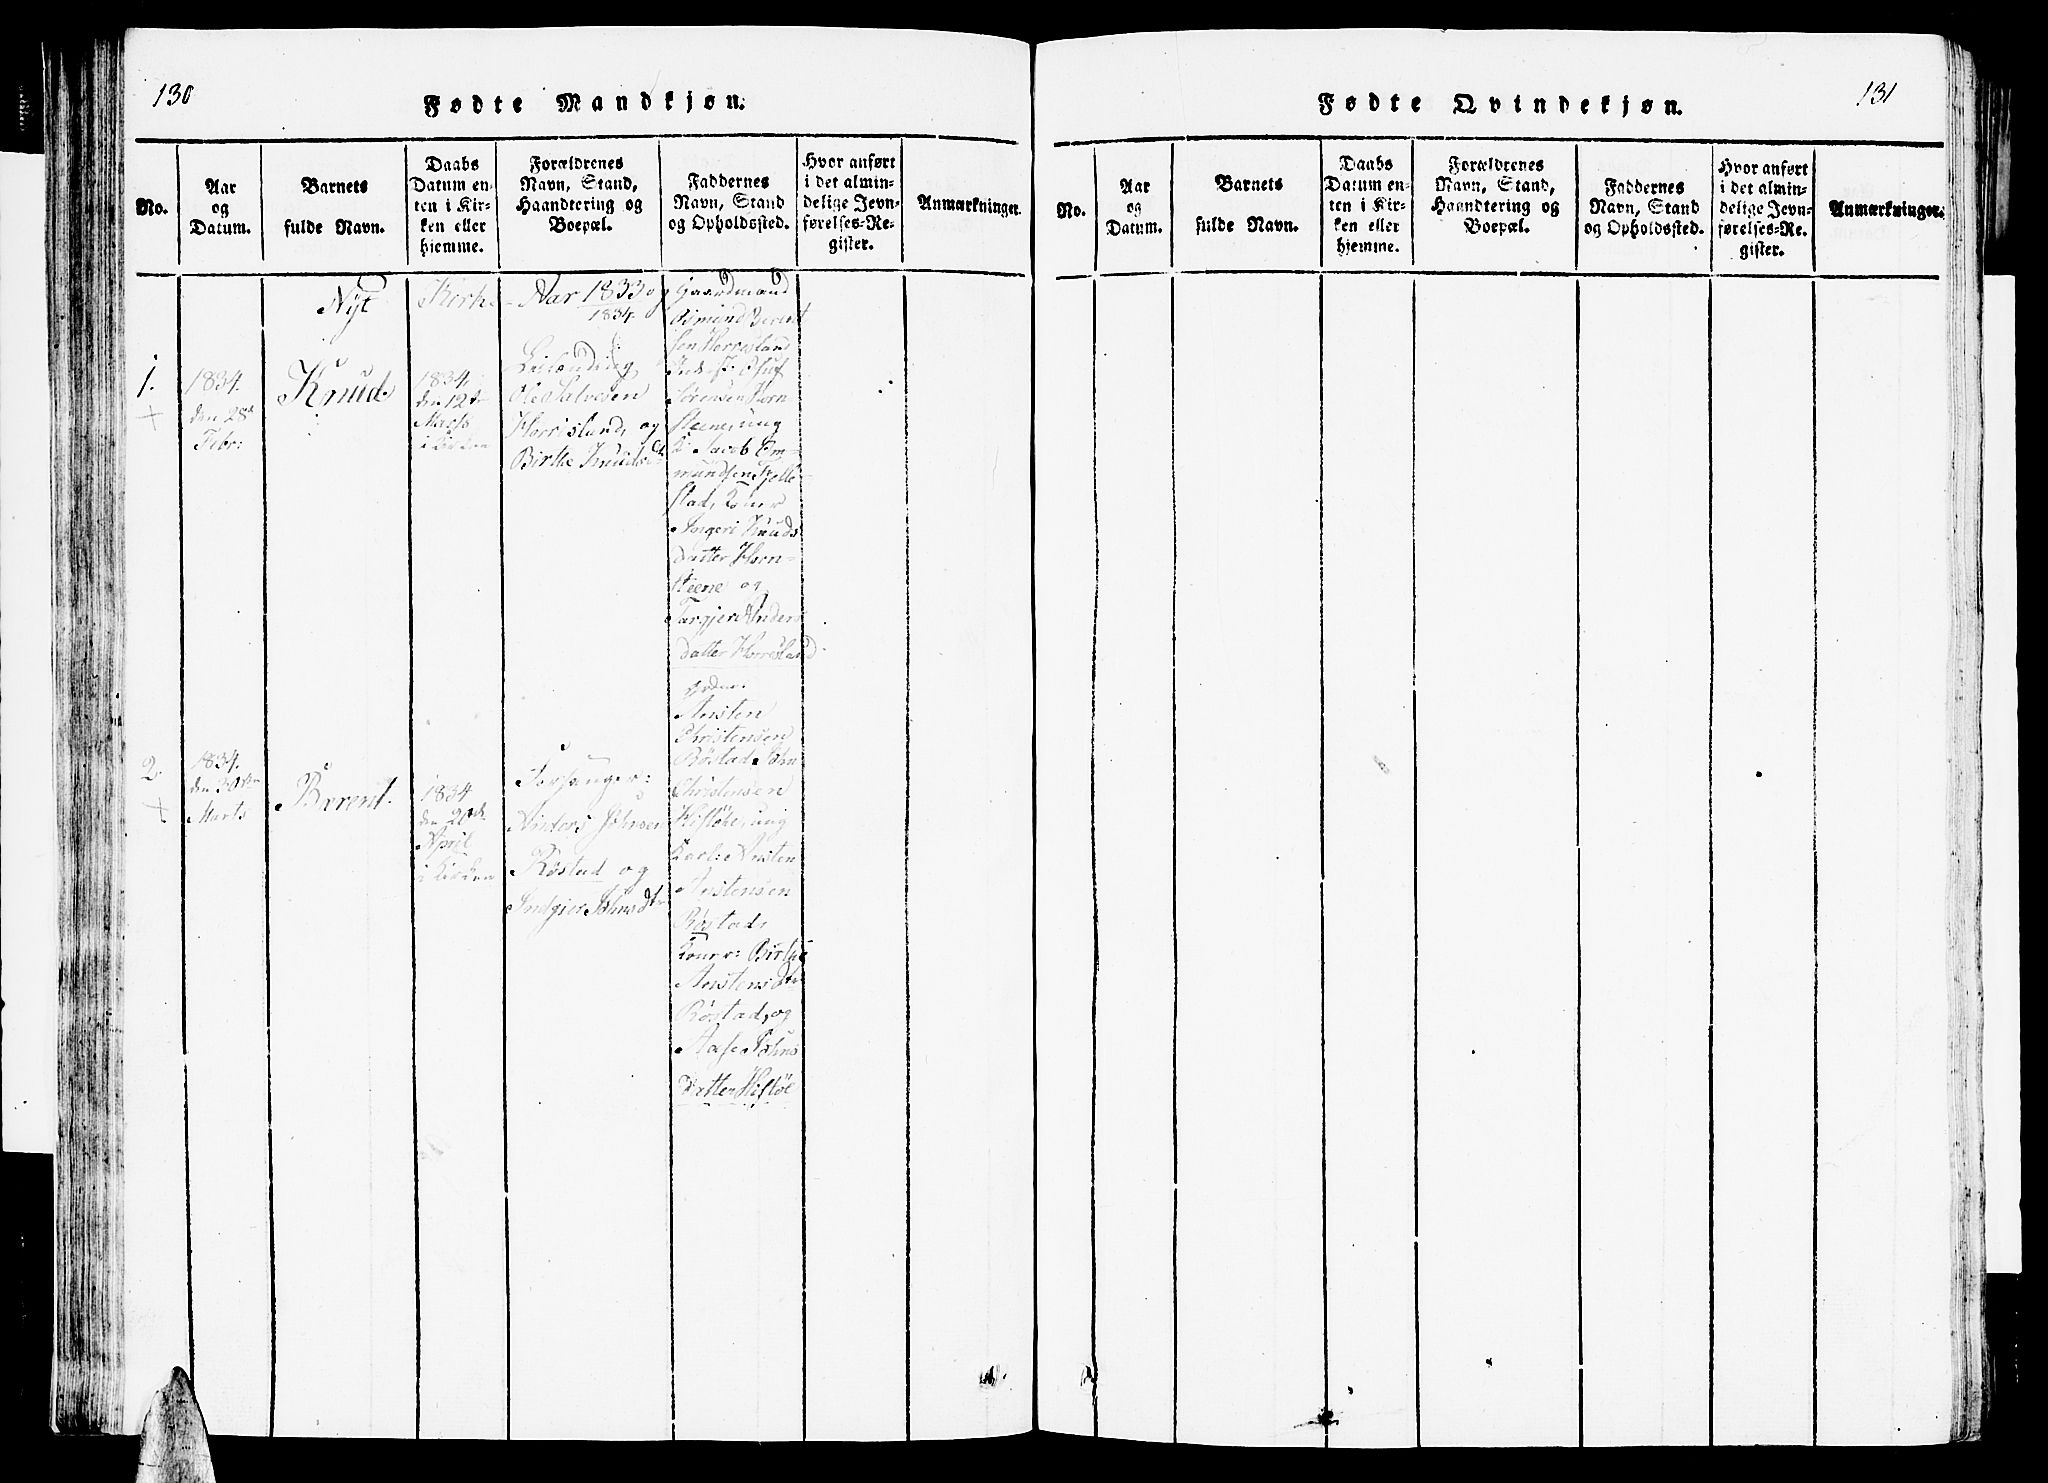 130
Fødte Mandkjøn.
No.
Aar
og
Datum.
Barnets
fulde Navn.
Daabs
Datum en-
ten i Kir-
ken eller
hjemme.
Forældrenes
Navn, Stand,
Haandtering og
Boepæl.
Faddernes
Navn, Stand
og Opholdssted.
Hvor anført
i det almin-
delige Jevn-
førelses-Re-
gister.
Anmærkninger.
Nyt Kirke-Aar 1833 og
1834.
1.
1834.
den 28de
Febr:
Knud.
1834,
den 12te
Marts
i Kirken
Ole Salvesen
Horrisland, og
Birthe Knudsdtr
Gaardmænd
Osmund Berent
sen Horrisland
Oluf
Sørensen Horn
steene, ung
K. Jacob Em-
mundsen Fjelle-
stad, Koner
Angeri Knuds
datter Horn-
steene og
Targjer Anders
datter Horrisland
2.
1834.
den 30te
Marts
Berent.
1834
den 20de
April
i Kirken
Forsanger:
Anders Johnsen
Røstad og
Indgier Johnsdtr
Aasten
Christensen
Røstad, John
Christensen
Hisløe, ung
Karl: Aasten
Aastensen
Røstad,
Koner: Birthe
Aastensdtr
Røstad, og
Aase Johns
datter Hisløe
131
Fødte Qvindekjøn.
No.
Aar
og
Datum.
Barnets
fulde Navn.
Daabs
Datum en-
ten i Kir-
ken eller
hjemme.
Forældrenes
Navn, Stand,
Haandtering og
Boepæl.
Faddernes
Navn, Stand
og Opholdssted.
Hvor anført
i det almin-
delige Jevn-
førelses-Re-
gister.
Anmærkninger.